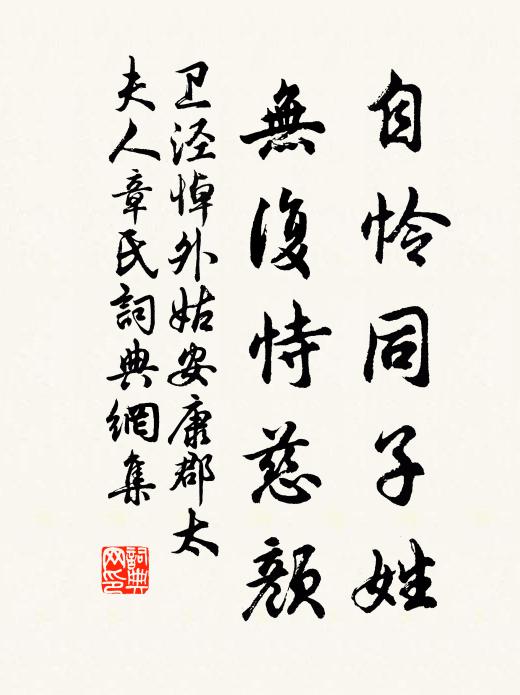 自怜同子姓
無復恃慈顔
卫泾悼外姑安康郡太
夫人章氏詞典網集
詞典网印